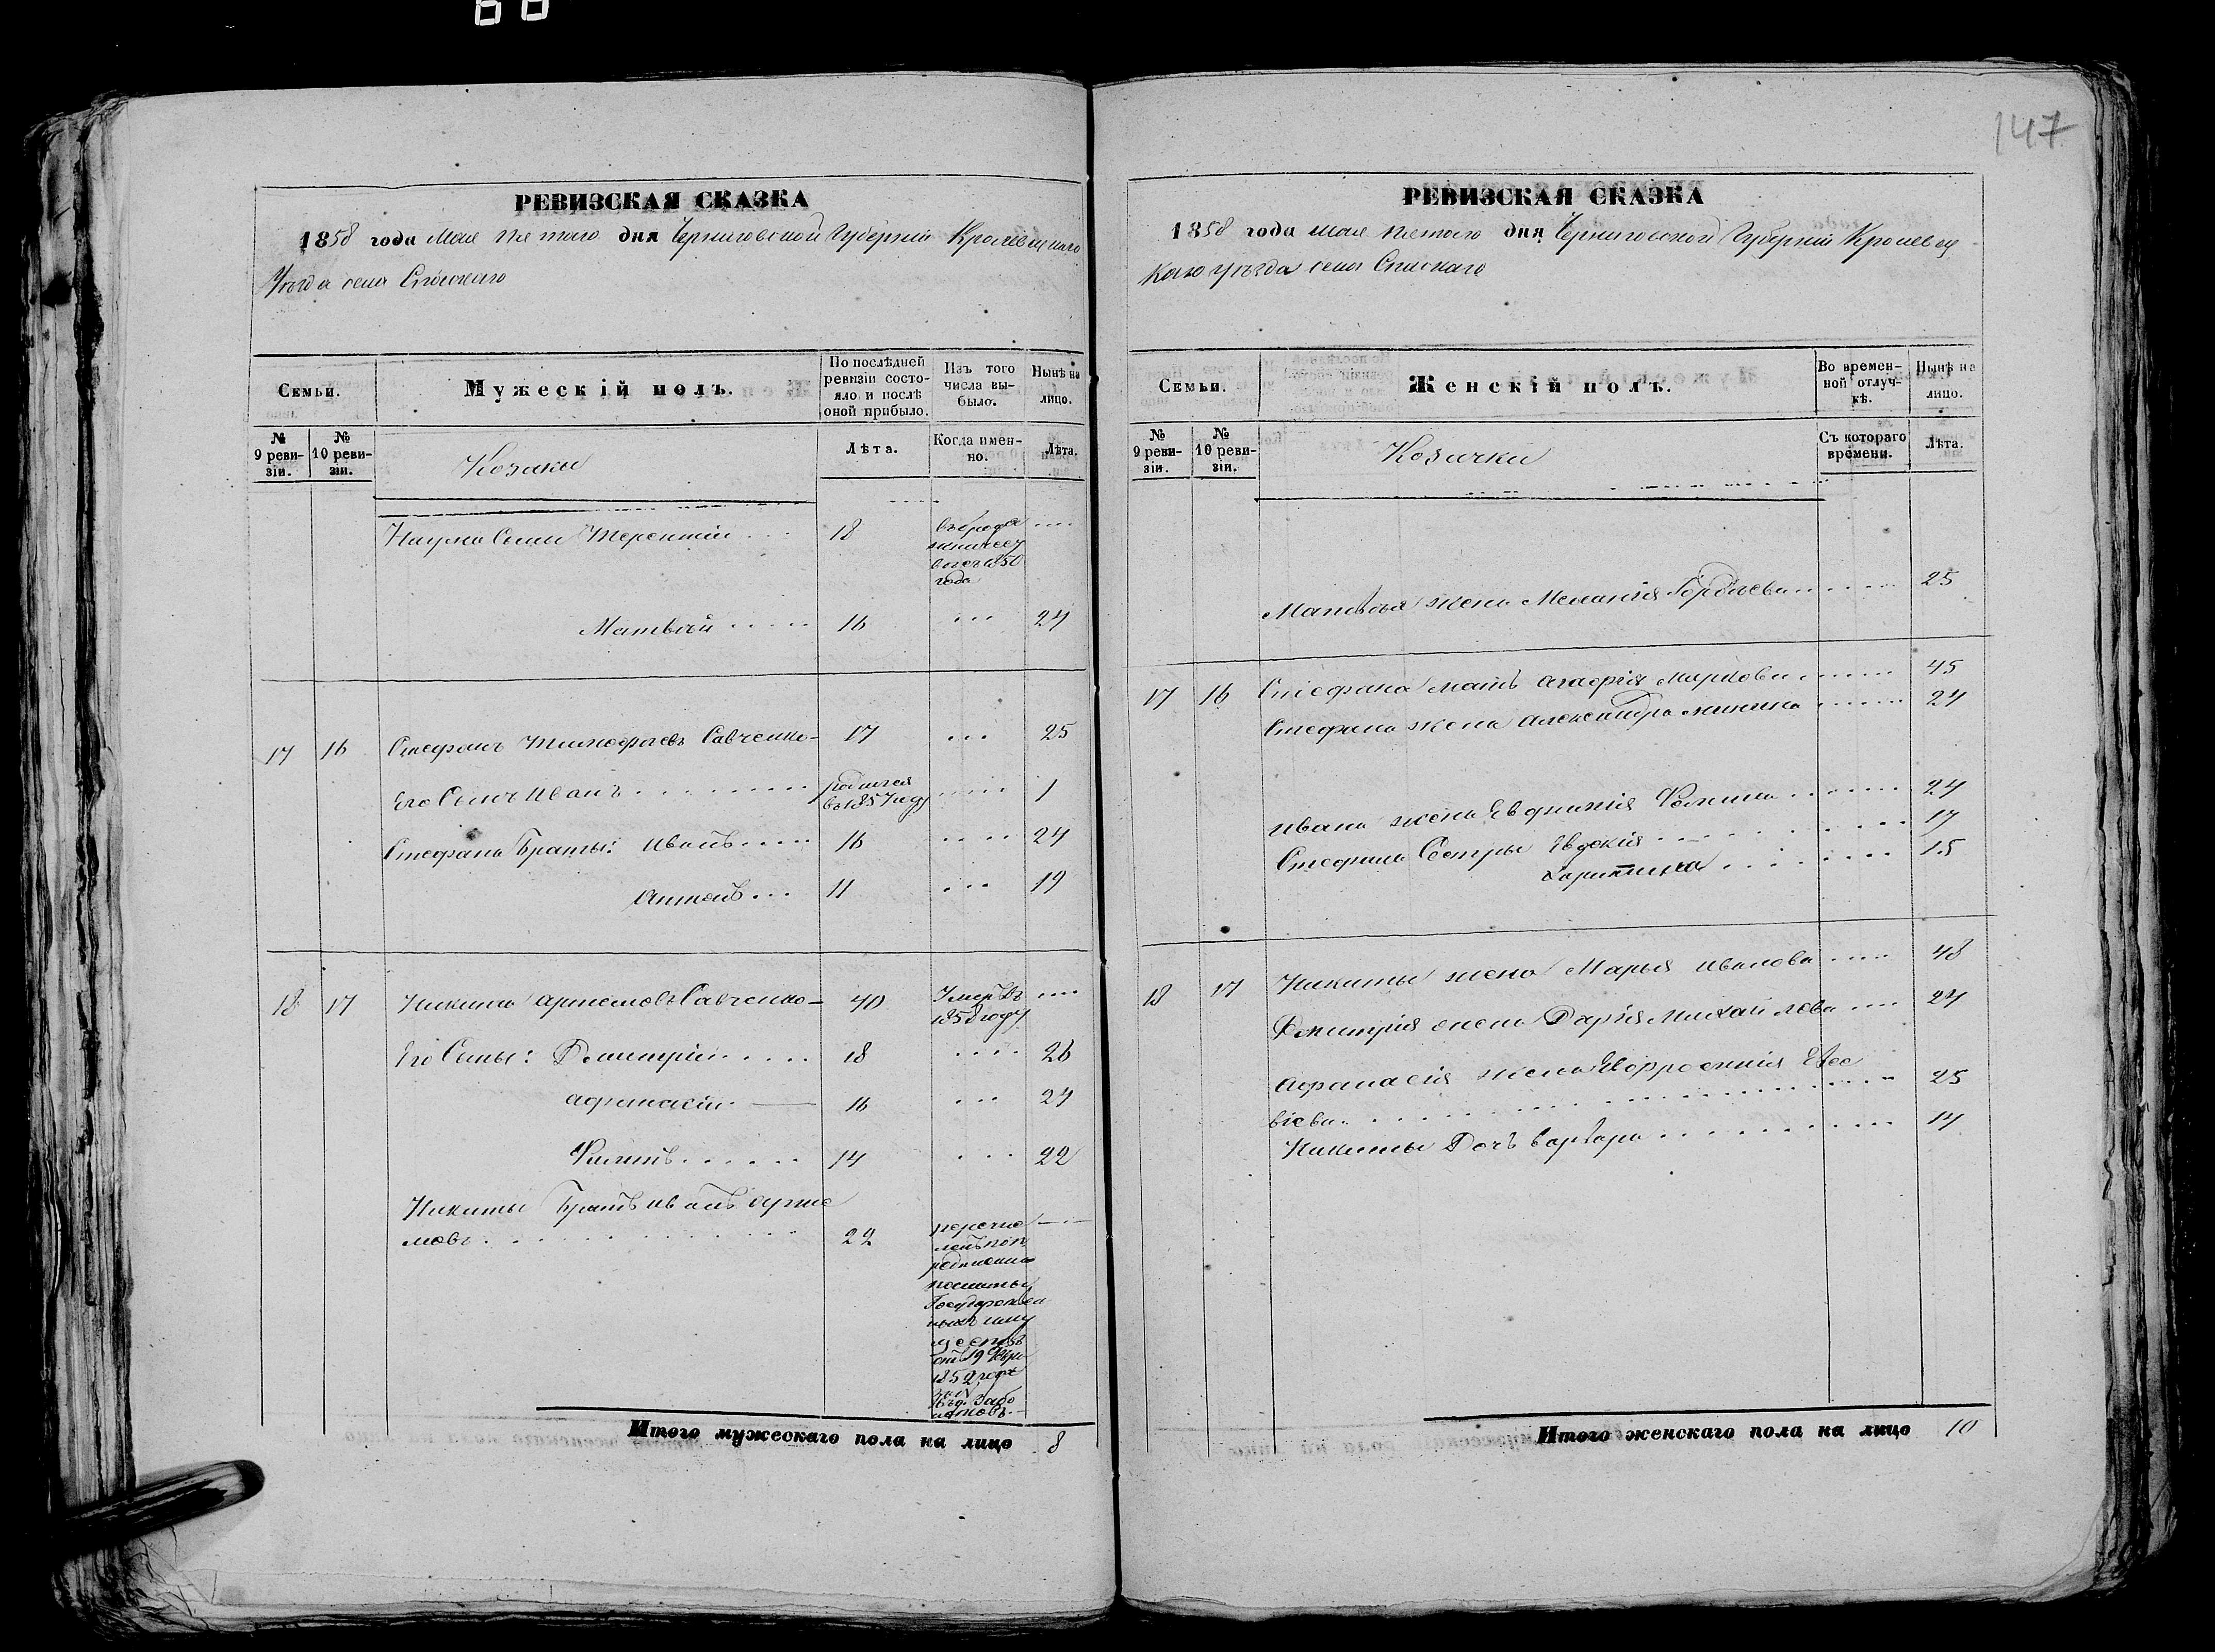 147
РЕВИЗСКАЯ СКАЗКА
1858 года Мая пятого дня Черниговской Губерніи Кролевецкаго
Уезда села Спаскаго
Семьи.
Мужескій полъ.
По послѣдней ревизіи состояло и послѣ оной прибыло.
Изъ того числа выбыло.
Нынѣ на лицо.
№ 9 ревизіи.
№ 10 ревизіи.
Козаки
Лѣта.
Когда именно.
Лѣта.
Наума Сыны Терентій 18
года
Матвѣй 16 24
17 16 Стефанъ Тимофѣевъ Савченко 17 25
Его Сынъ Иванъ родился въ 1857 году 1
Стефана Братья: Иванъ 16 24
Антонъ 11 19
18 17 Никита Артемовъ Савченко 40 Умеръ въ 1858 году
Его Сыны: Димитрій 18 26
Афанасій 16 24
Филипъ 14 22
Никиты Братъ Иванъ Арте
мовъ 22 перечис
ленъ по п
редписанію
палаты
Государствен
ныхъ иму
ществъ
отъ 19
1852 года
Итого мужескаго пола на лицо 8
РЕВИЗСКАЯ СКАЗКА
1858 года мая пятого дня Черниговской Губерніи Кролевец
каго уѣзда села Спаскаго
Семьи.
Женскій полъ.
Во временной отлучкѣ.
Нынѣ на лицо.
№ 9 ревизіи.
№ 10 ревизіи.
Козачки
Съ котораго времени.
Лѣта.
Матвѣя жена Меланія Гордѣева 25
17 16 Стефана мать Агафія Маркова 45
Стефана жена Александра Минина 24
Ивана жена Евфимія Фомина 24
Стефана Сестры Евдокія 17
Харитина 15
18 17 Никиты жена Марья Иванова 48
Димитрія жена Дарія Михайлова 24
Афанасія жена Евфросинія Евсе
віева 25
Никиты Дочь Варвара 14
Итого женскаго пола на лицо 10